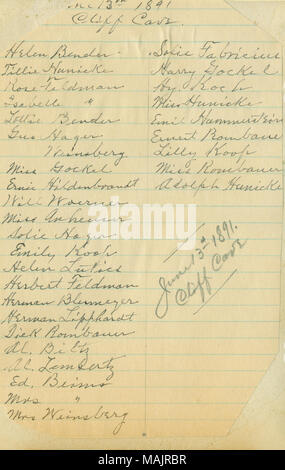 June 13th 1891
Cliff Cave.
Helen Bender
Tillie Hunicke
Rose Feldman
Isabelle "
Lottie Bender
Gus Hager
Weinsberg
Miss Gockel
Ernie Hildenbrandt
Will Woerner
Miss
Solie Hager
Emily Koop
Helen Luties
Herbert Feldman
Herman Blumeyer
Herman Lipphardt
Dick Rombauer
Al. Biltz
Al. Lambertz
Ed. Beims
Mrs "
Mrs Weinsberg
Solie Fabricius
Harry Gockel
Hy. Koch
Miss Hunicke
Emil Hammerstein
Ernest Rombauer
Lilly Koop
Miss Rombauer
Adolph Hunicke
June 13th 1891.
Cliff Cave
alamy
Image ID: MAJRBR
www.alamy.com